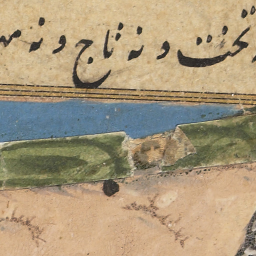 تخت و نه تاج و نه